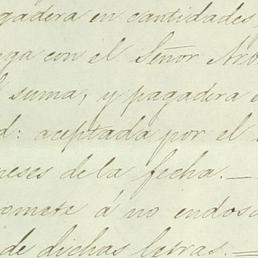 gadera en cantidades
ga con el Señor
suma; y pagadera
d: aceptada por el
meses de la fecha.—
omete á no endosa
de dichas letras.=